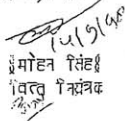 14/9/98
(मोहन सिंह)
वित्त नियंत्रक